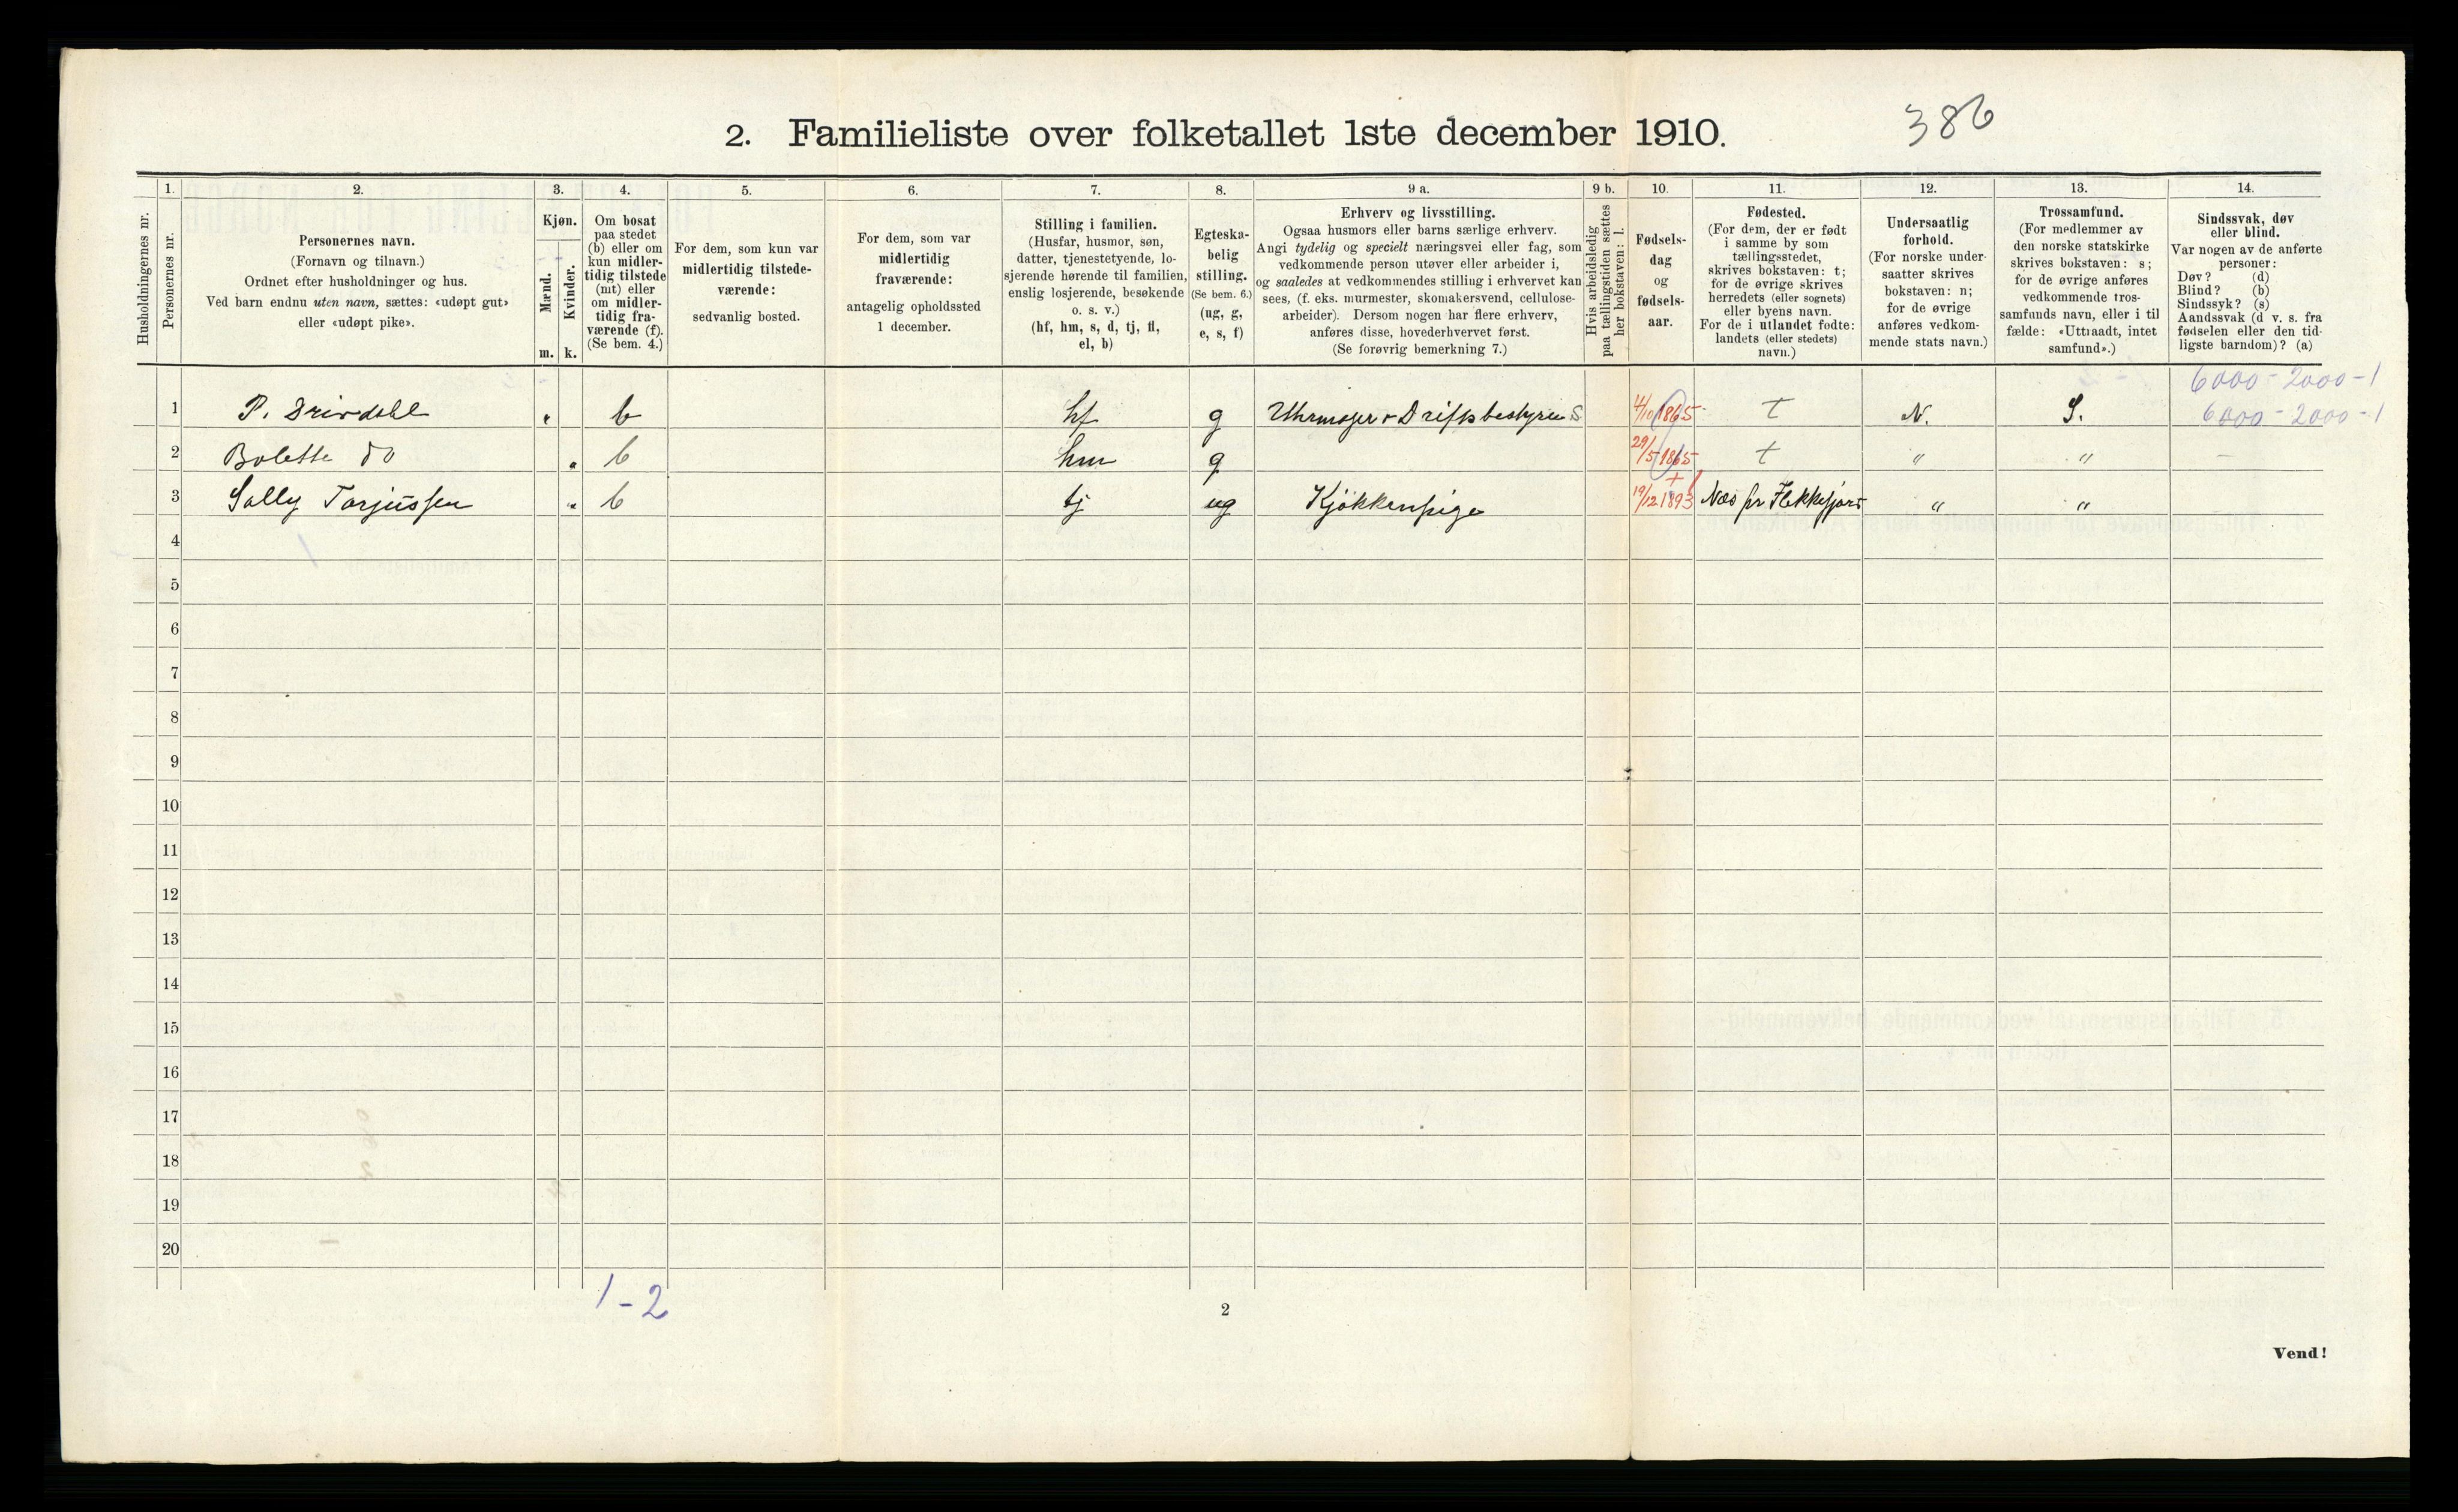 2. Familieliste over folketallet 1ste december 1910.
386
Husholdningernes nr.
1.
Personernes nr.
2.
Personernes navn.
(Fornavn og tilnavn.)
Ordnet efter husholdninger og hus.
Ved barn endnu uten navn, sættes: «udøpt gut»
eller «udøpt pike».
3.
Kjøn.
Mænd.
Kvinder.
m. k.
4.
Om bosat
paa stedet
(b) eller om
kun midler-
tidig tilstede
(mt) eller
om midler-
tidig fra-
værende (f).
(Se bem. 4.)
5.
For dem, som kun var
midlertidig tilstede-
værende:
sedvanlig bosted.
6.
For dem, som var
midlertidig
fraværende:
antagelig opholdssted
1 december.
7.
Stilling i familien.
(Husfar, husmor, søn,
datter, tjenestetyende, lo-
sjerende hørende til familien,
enslig losjerende, besøkende
o. s. v.)
(hf, hm, s, d, tj, fl,
el, b)
8.
Egteska-
belig
stilling.
(Se bem. 6.)
(ug, g,
e, s, f)
9 a.
Erhverv og livsstilling.
Ogsaa husmors eller barns særlige erhverv.
Angi tydelig og specielt næringsvei eller fag, som
vedkommende person utøver eller arbeider i,
og saaledes at vedkommendes stilling i erhvervet kan
sees, (f. eks. murmester, skomakersvend, cellulose-
arbeider). Dersom nogen har flere erhverv,
anføres disse, hovederhvervet først.
(Se forøvrig bemerkning 7.)
9 b.
Hvis arbeidsledig
paa tællingstiden sættes
her bokstaven: l.
10.
Fødsels-
dag
og
fødsels-
aar.
11.
Fødested.
(For dem, der er født
i samme by som
tællingsstedet,
skrives bokstaven: t;
for de øvrige skrives
herredets (eller sognets)
eller byens navn.
For de i utlandet fødte:
landets (eller stedets)
navn.)
12.
Undersaatlig
forhold.
(For norske under-
saatter skrives
bokstaven: n;
for de øvrige
anføres vedkom-
mende stats navn.)
13.
Trossamfund.
(For medlemmer av
den norske statskirke
skrives bokstaven: s;
for de øvrige anføres
vedkommende tros-
samfunds navn, eller i til
fælde: «Uttraadt, intet
samfund».)
14.
Sindssvak, døv
eller blind.
Var nogen av de anførte
personer:
Døv? (d)
Blind? (b)
Sindssyk? (s)
Aandssvak (d v. s. fra
fødselen eller den tid-
ligste barndom)? (a)
6000 - 2000 - 1
1 P. Drivdahl b hf g Uhrmager + Driftsbestyrer S 4/10 1865 t N. S. 6000 - 2000 - 1
2 Bolette do b hm g 29/5 1865 t " " -
3 Sally Torjussen b tj ug Kjøkkenpige 19/12 1893 Næs pr Flekkefjord " "
4
5
6
7
8
9
10
11
12
13
14
15
16
17
18
19
20
1 - 2
2
Vend!